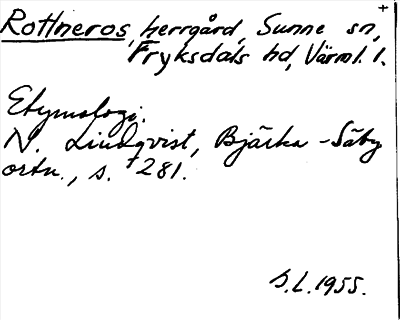 Rottneros, herrgård, Sunne sn,
Fryksdals hd, Värml. l.
Etymologi.
N. Lindqvist, Bjärka-Säby
ortn., s. 281.
S.L. 1955.